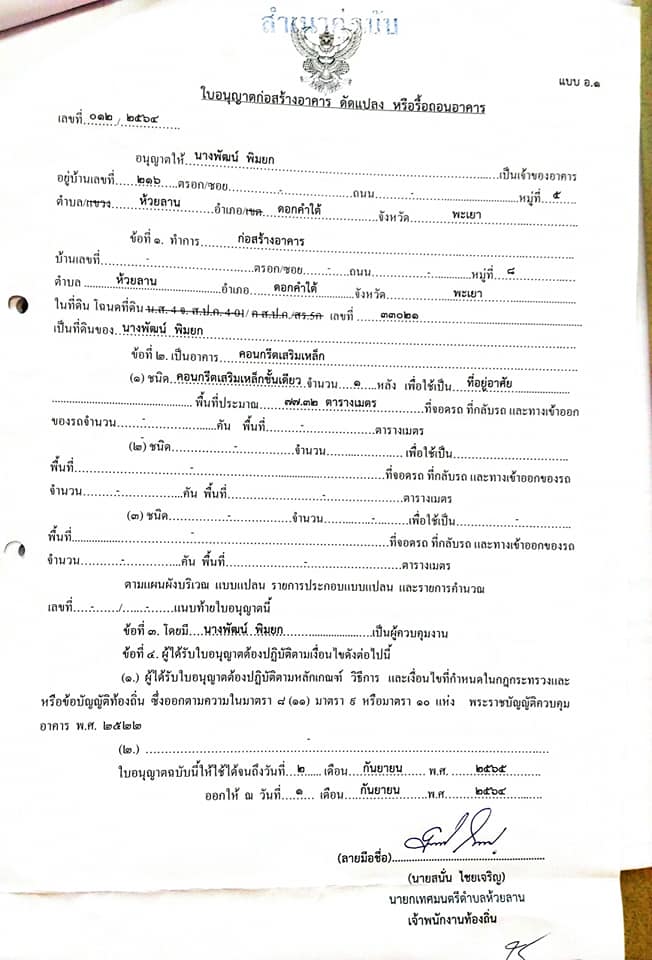 สำเนาคู่ฉบับ
แบบ อ.๑
ใบอนุญาตก่อสร้างอาคาร ดัดแปลง หรือรื้อถอนอาคาร
เลขที่ ๐๑๒ / ๒๕๖๔
อนุญาตให้ นางพัฒน์ พิมยก เป็นเจ้าของอาคาร
อยู่บ้านเลขที่ ๒๑๖ ตรอก/ซอย - ถนน - หมู่ที่ ๕
ตำบล/แขวง ห้วยลาน อำเภอ/เขต ดอกคำใต้ จังหวัด พะเยา
ข้อที่ ๑. ทำการ ก่อสร้างอาคาร
บ้านเลขที่ - ตรอก/ซอย - ถนน - หมู่ที่ ๘
ตำบล ห้วยลาน อำเภอ ดอกคำใต้ จังหวัด พะเยา
ในที่ดิน โฉนดที่ดิน น.ส. 4 จ. ส.ป.ก. 4-01/ ก ส.ป.ก./สร.5ก เลขที่ ๓๓๐๒๑
เป็นที่ดินของ นางพัฒน์ พิมยก
ข้อที่ ๒. เป็นอาคาร คอนกรีตเสริมเหล็ก
(๑) ชนิด คอนกรีตเสริมเหล็กชั้นเดียว จำนวน ๑ หลัง เพื่อใช้เป็น ที่อยู่อาศัย
พื้นที่ประมาณ ๗๗.๓๒ ตารางเมตร ที่จอดรถ ที่กลับรถ และทางเข้าออก
ของรถจำนวน - คัน พื้นที่ - ตารางเมตร
(๒) ชนิด - จำนวน - เพื่อใช้เป็น
พื้นที่ - ที่จอดรถ ที่กลับรถ และทางเข้าออกของรถ
จำนวน - คัน พื้นที่ - ตารางเมตร
(๓) ชนิด - จำนวน - เพื่อใช้เป็น -
พื้นที่ - ที่จอดรถ ที่กลับรถ และทางเข้าออกของรถ
จำนวน - คัน พื้นที่ - ตารางเมตร
ตามแผนผังบริเวณ แบบแปลน รายการประกอบแบบแปลน และรายการคำนวณ
เลขที่ - / - แนบท้ายใบอนุญาตนี้
ข้อที่ ๓. โดยมี นางพัฒน์ พิมยก เป็นผู้ควบคุมงาน
ข้อที่ ๔. ผู้ได้รับใบอนุญาตต้องปฏิบัติตามเงื่อนไขดังต่อไปนี้
(๑.) ผู้ได้รับใบอนุญาตต้องปฏิบัติตามหลักเกณฑ์ วิธีการ และเงื่อนไขที่กำหนดในกฎกระทรวงและ
หรือข้อบัญญัติท้องถิ่น ซึ่งออกตามความในมาตรา ๘ (๑๑) มาตรา ๙ หรือมาตรา ๑๐ แห่ง พระราชบัญญัติควบคุม
อาคาร พ.ศ. ๒๕๒๒
(๒.) -
ใบอนุญาตฉบับนี้ให้ใช้ได้จนถึงวันที่ ๒ เดือน กันยายน พ.ศ. ๒๕๖๕
ออกให้ ณ วันที่ ๑ เดือน กันยายน พ.ศ. ๒๕๖๔
(ลายมือชื่อ)
(นายสนั่น ไชยเจริญ)
นายกเทศมนตรีตำบลห้วยลาน
เจ้าพนักงานท้องถิ่น